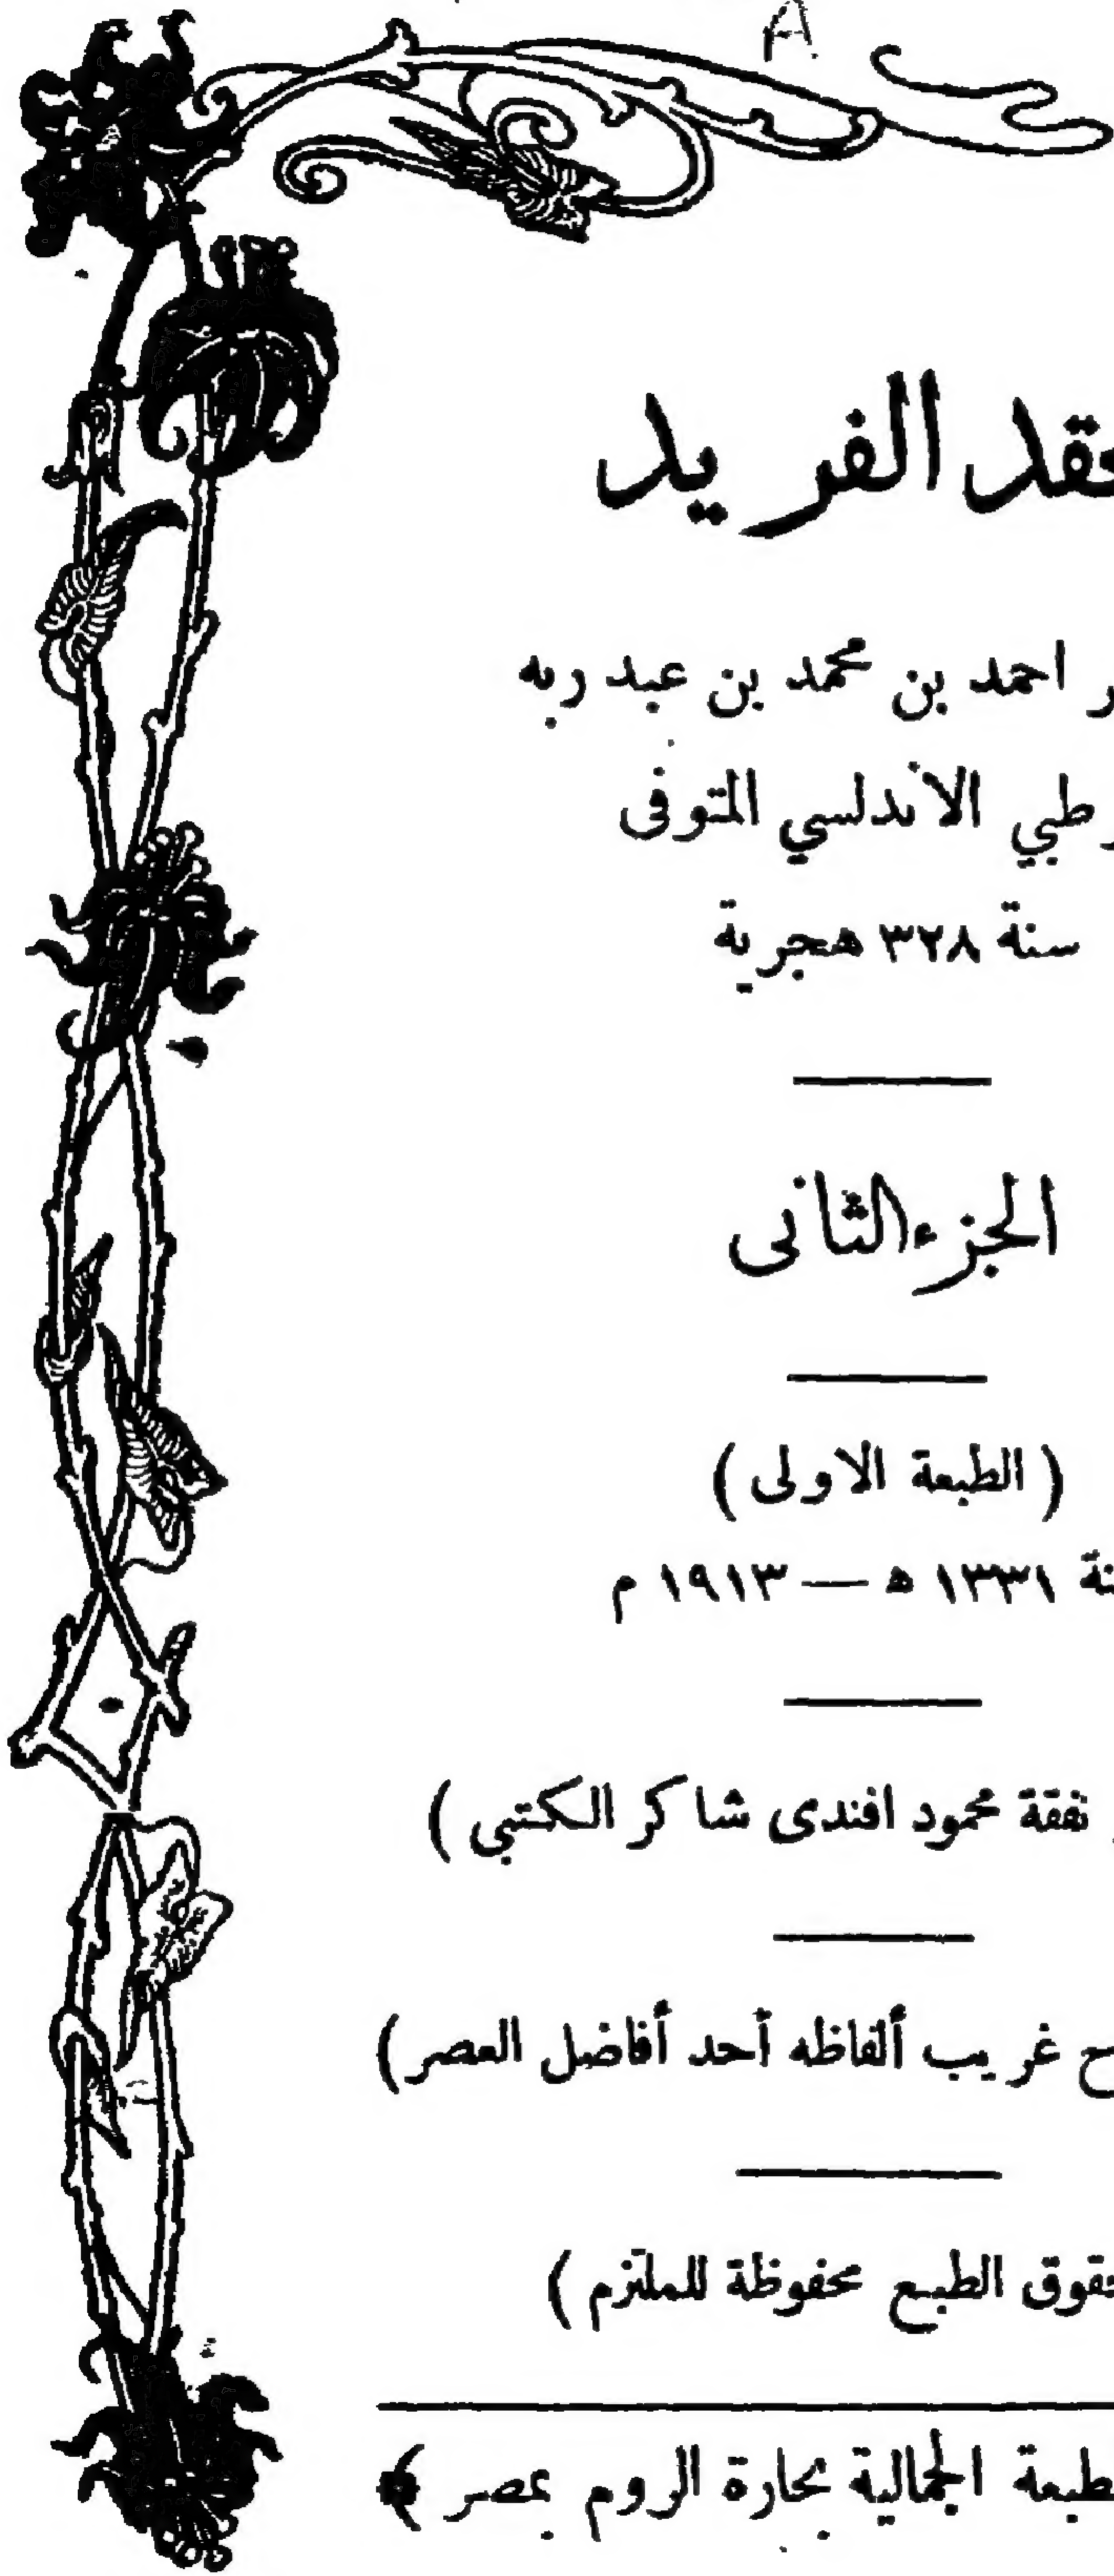 A
عقد الفريد
ر احمد بن محمد بن عبد ربه
رطبي الأندلسي المتوفى
سنة ٣٢٨ هجرية
الجزء الثانى
( الطبعة الاولى )
نة ١٣٣١ ه — ١٩١٣ م
نفقة محمود افندى شاكر الكتبي )
ح غريب ألفاظه أحد أفاضل العصر)
قوق الطبع محفوظة للملتزم )
طبعة الجمالية بحارة الروم بمصر ﴾